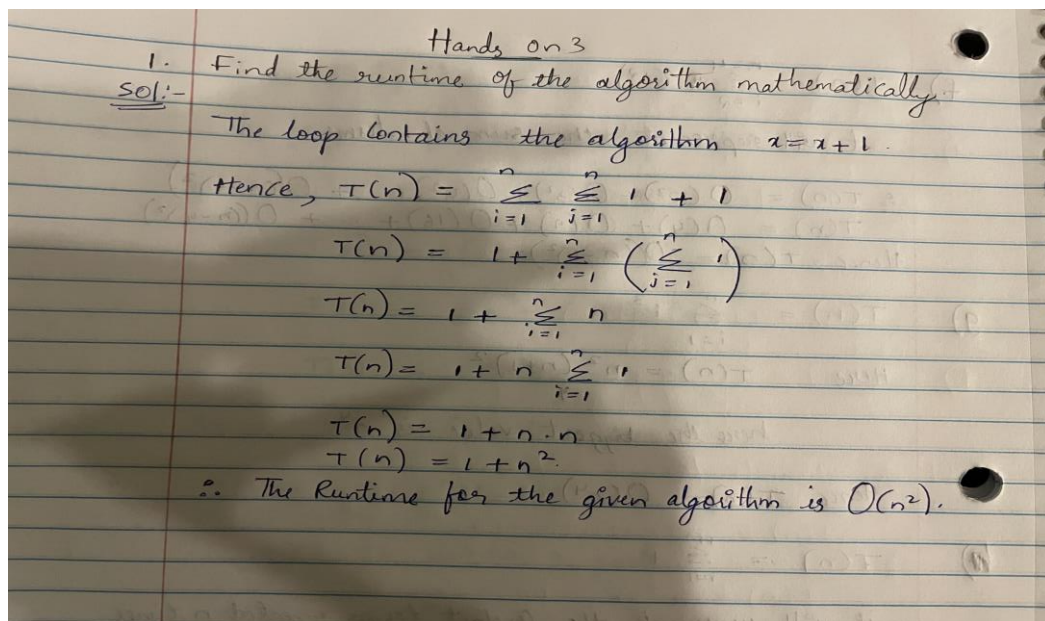 Hands on 3
1. Find the runtime of the algorithm mathematically.
Sol:-
The loop Contains the algorithm x = x + 1.
Hence, T(n) = n∑i=1 n∑j=1 1 + 1
T(n) = 1 + n∑i=1 (n∑j=1 1)
T(n) = 1 + n∑i=1 n
T(n) = 1 + n n∑i=1 1
T(n) = 1 + n·n
T(n) = 1 + n².
∴ The Runtime for the given algorithm is O(n²).